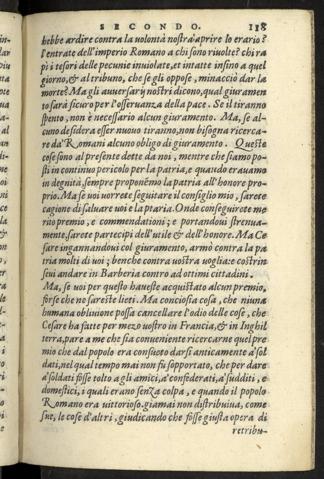 SECONDO. 118
hebbe ardire contra la volontà nostra aprire lo erario?
l'entrate dell'imperio Romano a chi sono riuolte? chi ra
pì i tesori delle pecunie inuiolate, et intatte insino a quel
giorno, & al tribuno, che se gli oppose, minacciò dar la
morte? Ma gli auuersarij nostri dicono, qual giuramen
to sarà sicuro per l'osseruanza della pace. Se il tiranno
è spento, non è necessario alcun giuramento. Ma, se al-
cuno desidera esser nuouo tiranno, non bisogna ricerca-
re da' Romani alcuno obligo di giuramento. Queste
cose sono al presente dette da noi, mentre che siamo po-
sti in continuo pericolo per la patria, e quando erauamo
in degnità, sempre proponemo la patria all'honore pro-
prio. Ma se uoi vorrete seguitare il consiglio mio, sarete
cagione di saluare uoi e la ptaria. Onde conseguirote me
rito premio, e commendationi; e portandoui strenua-
mente, sarete partecipi dell'utile & dell'honore. Ma Ce
sare ingannandoui col giuramento, armò contra la pa
tria molti di uoi; benche contra uostra uoglia: e costrin
seui andare in Barberia contro ad ottimi cittadini.
Ma, se uoi per questo haueste acquistato alcun premio,
forse che ne sareste lieti. Ma conciosia cosa, che niuna
humana obliuione possa cancellare l'odio delle cose, che
Cesare ha fatte per mezo uostro in Francia, & in Inghil
terra, pare a me che sia conueniente ricercarne quel pre
mio che dal popolo era consuoto darsi anticamente a' sol
dati, nel qual tempo mai non fu sopportato, che per dare
a' soldati fosse tolto a gli amici, a' confederati, a' sudditi, e
domestici, i quali erano senza colpa, e quando il popolo
Romano era uittorioso. giamai non distribuiua, come
sue, le cose d'altri, giudicando che fosse giusta opera di
retribu-